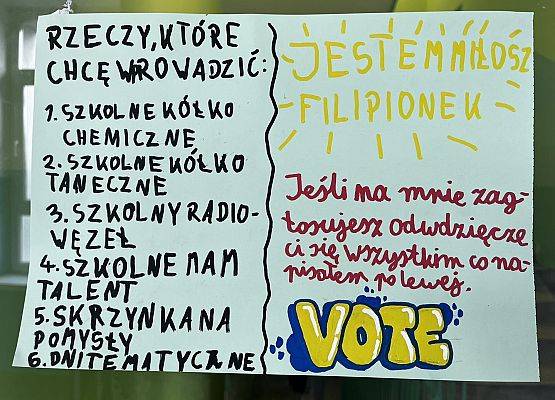 RZECZY, KTÓRE
CHCĘ WPROWADZIĆ:
1. SZKOLNE KÓŁKO
CHEMICZNE
2. SZKOLNE KÓŁKO
TANECZNE
3. SZKOLNY RADIO-
WĘZEŁ
4. SZKOLNE MAM
TALENT
5. SKRZYNKA NA
POMYSŁY
6. DNI TEMATYCZNE
JESTEM MIŁOSZ
FILIPIONEK
Jeśli na mnie zag-
łosujesz odwdzięczę
ci się wszystkim co na-
pisałem po lewej.
VOTE